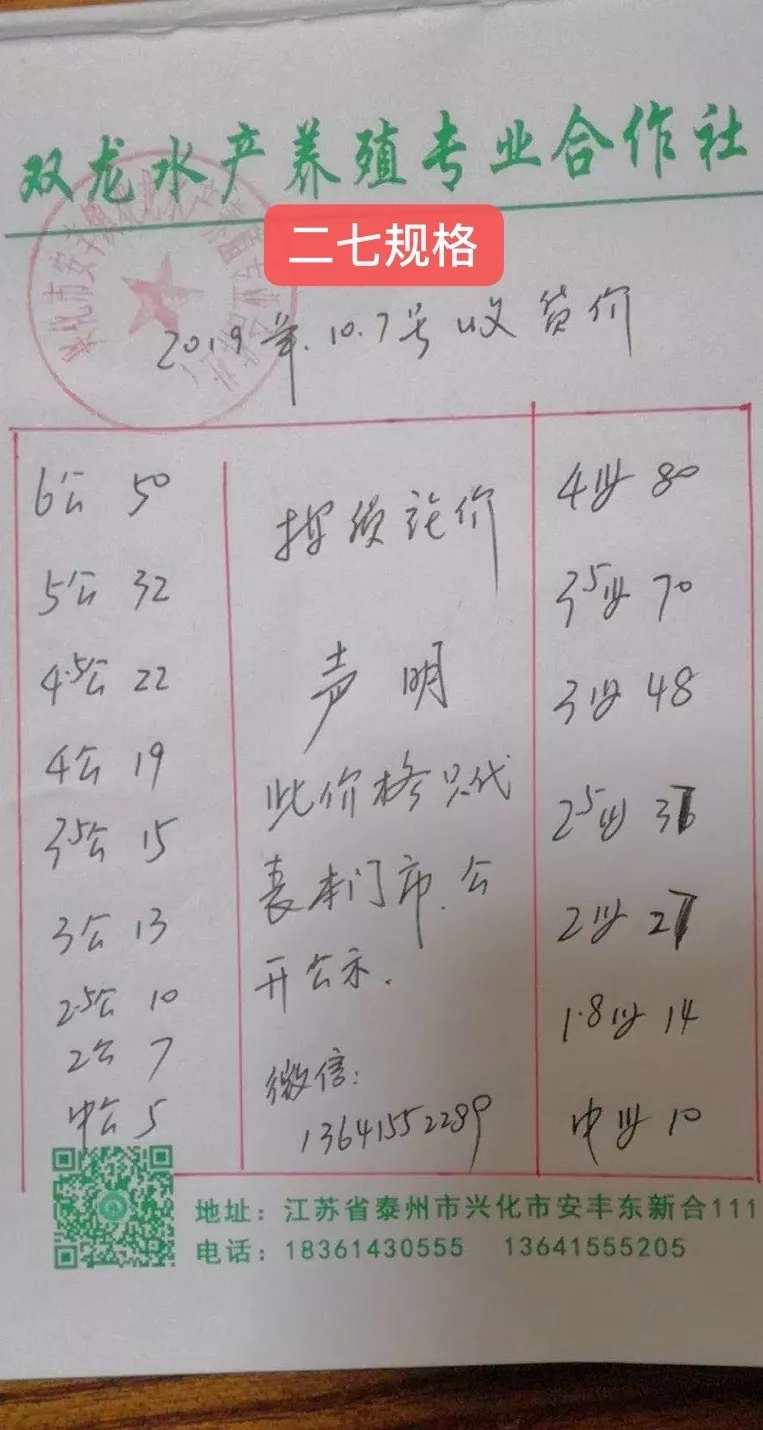 双龙水产养殖专业合作社
二七规格
2019年.10.7号收货价
6公 50
5公 32
4.5公 22
4公 19
3.5公 15
3公 13
2.5公 10
2公 7
中公 5
声明
此价格只代
表本门市.公
开公示.
微信:
13641552289
4母 80
35母 70
3母 48
25母
2母
1.8母 14
中母 10
地址:江苏省泰州市兴化市安丰东新合111
电话:18361430555 13641555205